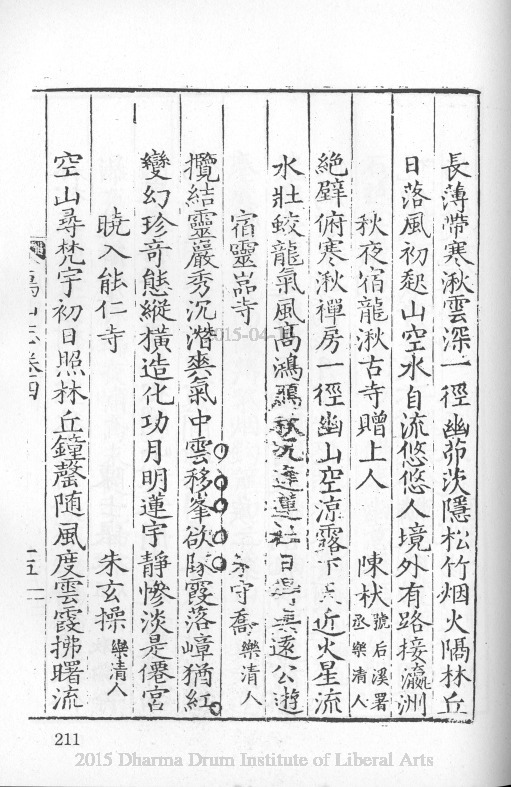 長薄帶寒湫雲深一徑幽茆茨隱松竹烟火隔林丘
日落風初起山空水自流悠悠人境外有路接瀛洲
秋夜宿龍湫古寺贈上人 陳栿 號后溪署丞樂清人
絶壁俯寒湫禪房一徑幽山空涼露下 近火星流
水壯蛟龍氣風髙鴻鴈秋 蓮社日 遠公遊
宿靈嵓寺 守喬 樂清人
攬結靈巖秀沉潛 氣中雲移峯欲 霞落嶂猶紅
變幻珍竒態縱橫造化功月明蓮宇靜慘淡是僊宮
曉入能仁寺 朱玄操 樂清人
空山尋梵宇初日照林丘鐘聲随風度雲霞拂曙流
山志卷四
211
2015-04-
2015 Dharma Drum Institute of Liberal Arts